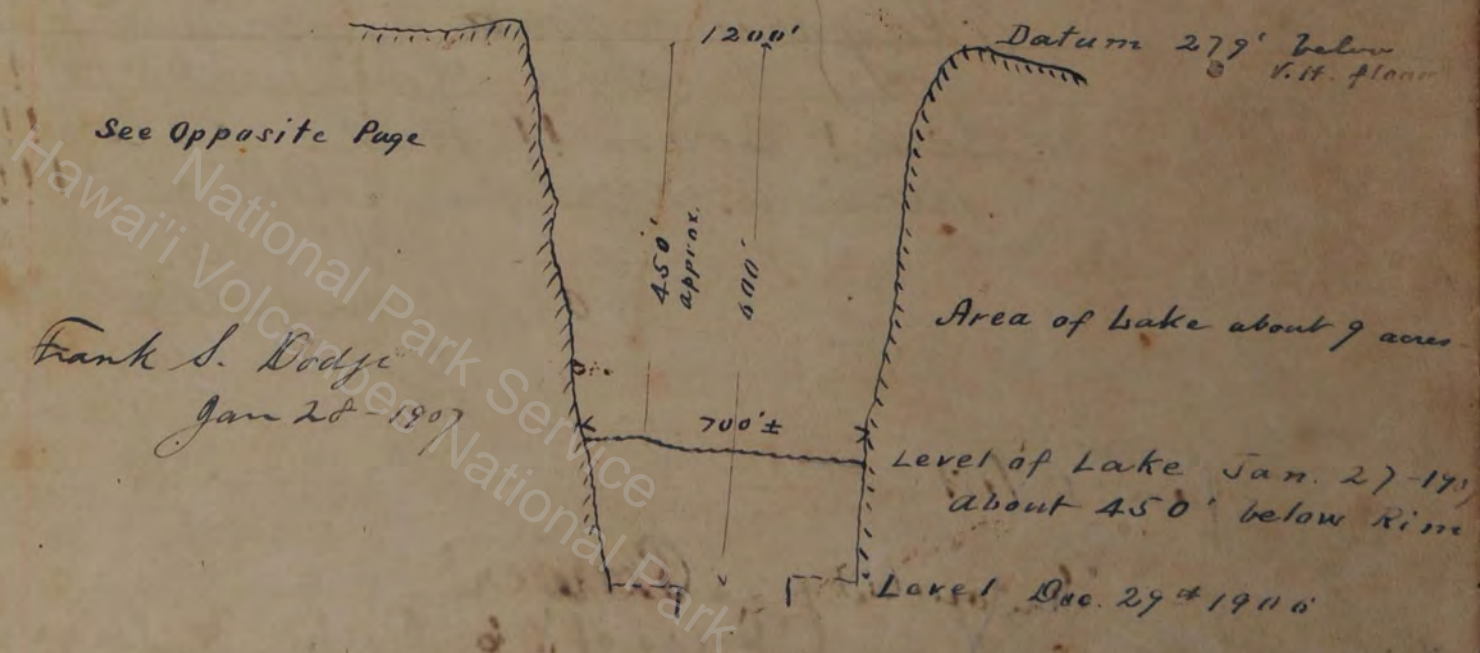 1200'
Datum 279' below
V.H. floor
See Opposite Page
450'
approx.
600'
Area of Lake about 9 acres
Frank S. Dodge
Jan 28 - 1907
700'±
Level of Lake Jan. 27 - 190
About 450' below Rim
Level Dec. 29th 1906
National Park Service
Hawai'i Volcanoes National Park